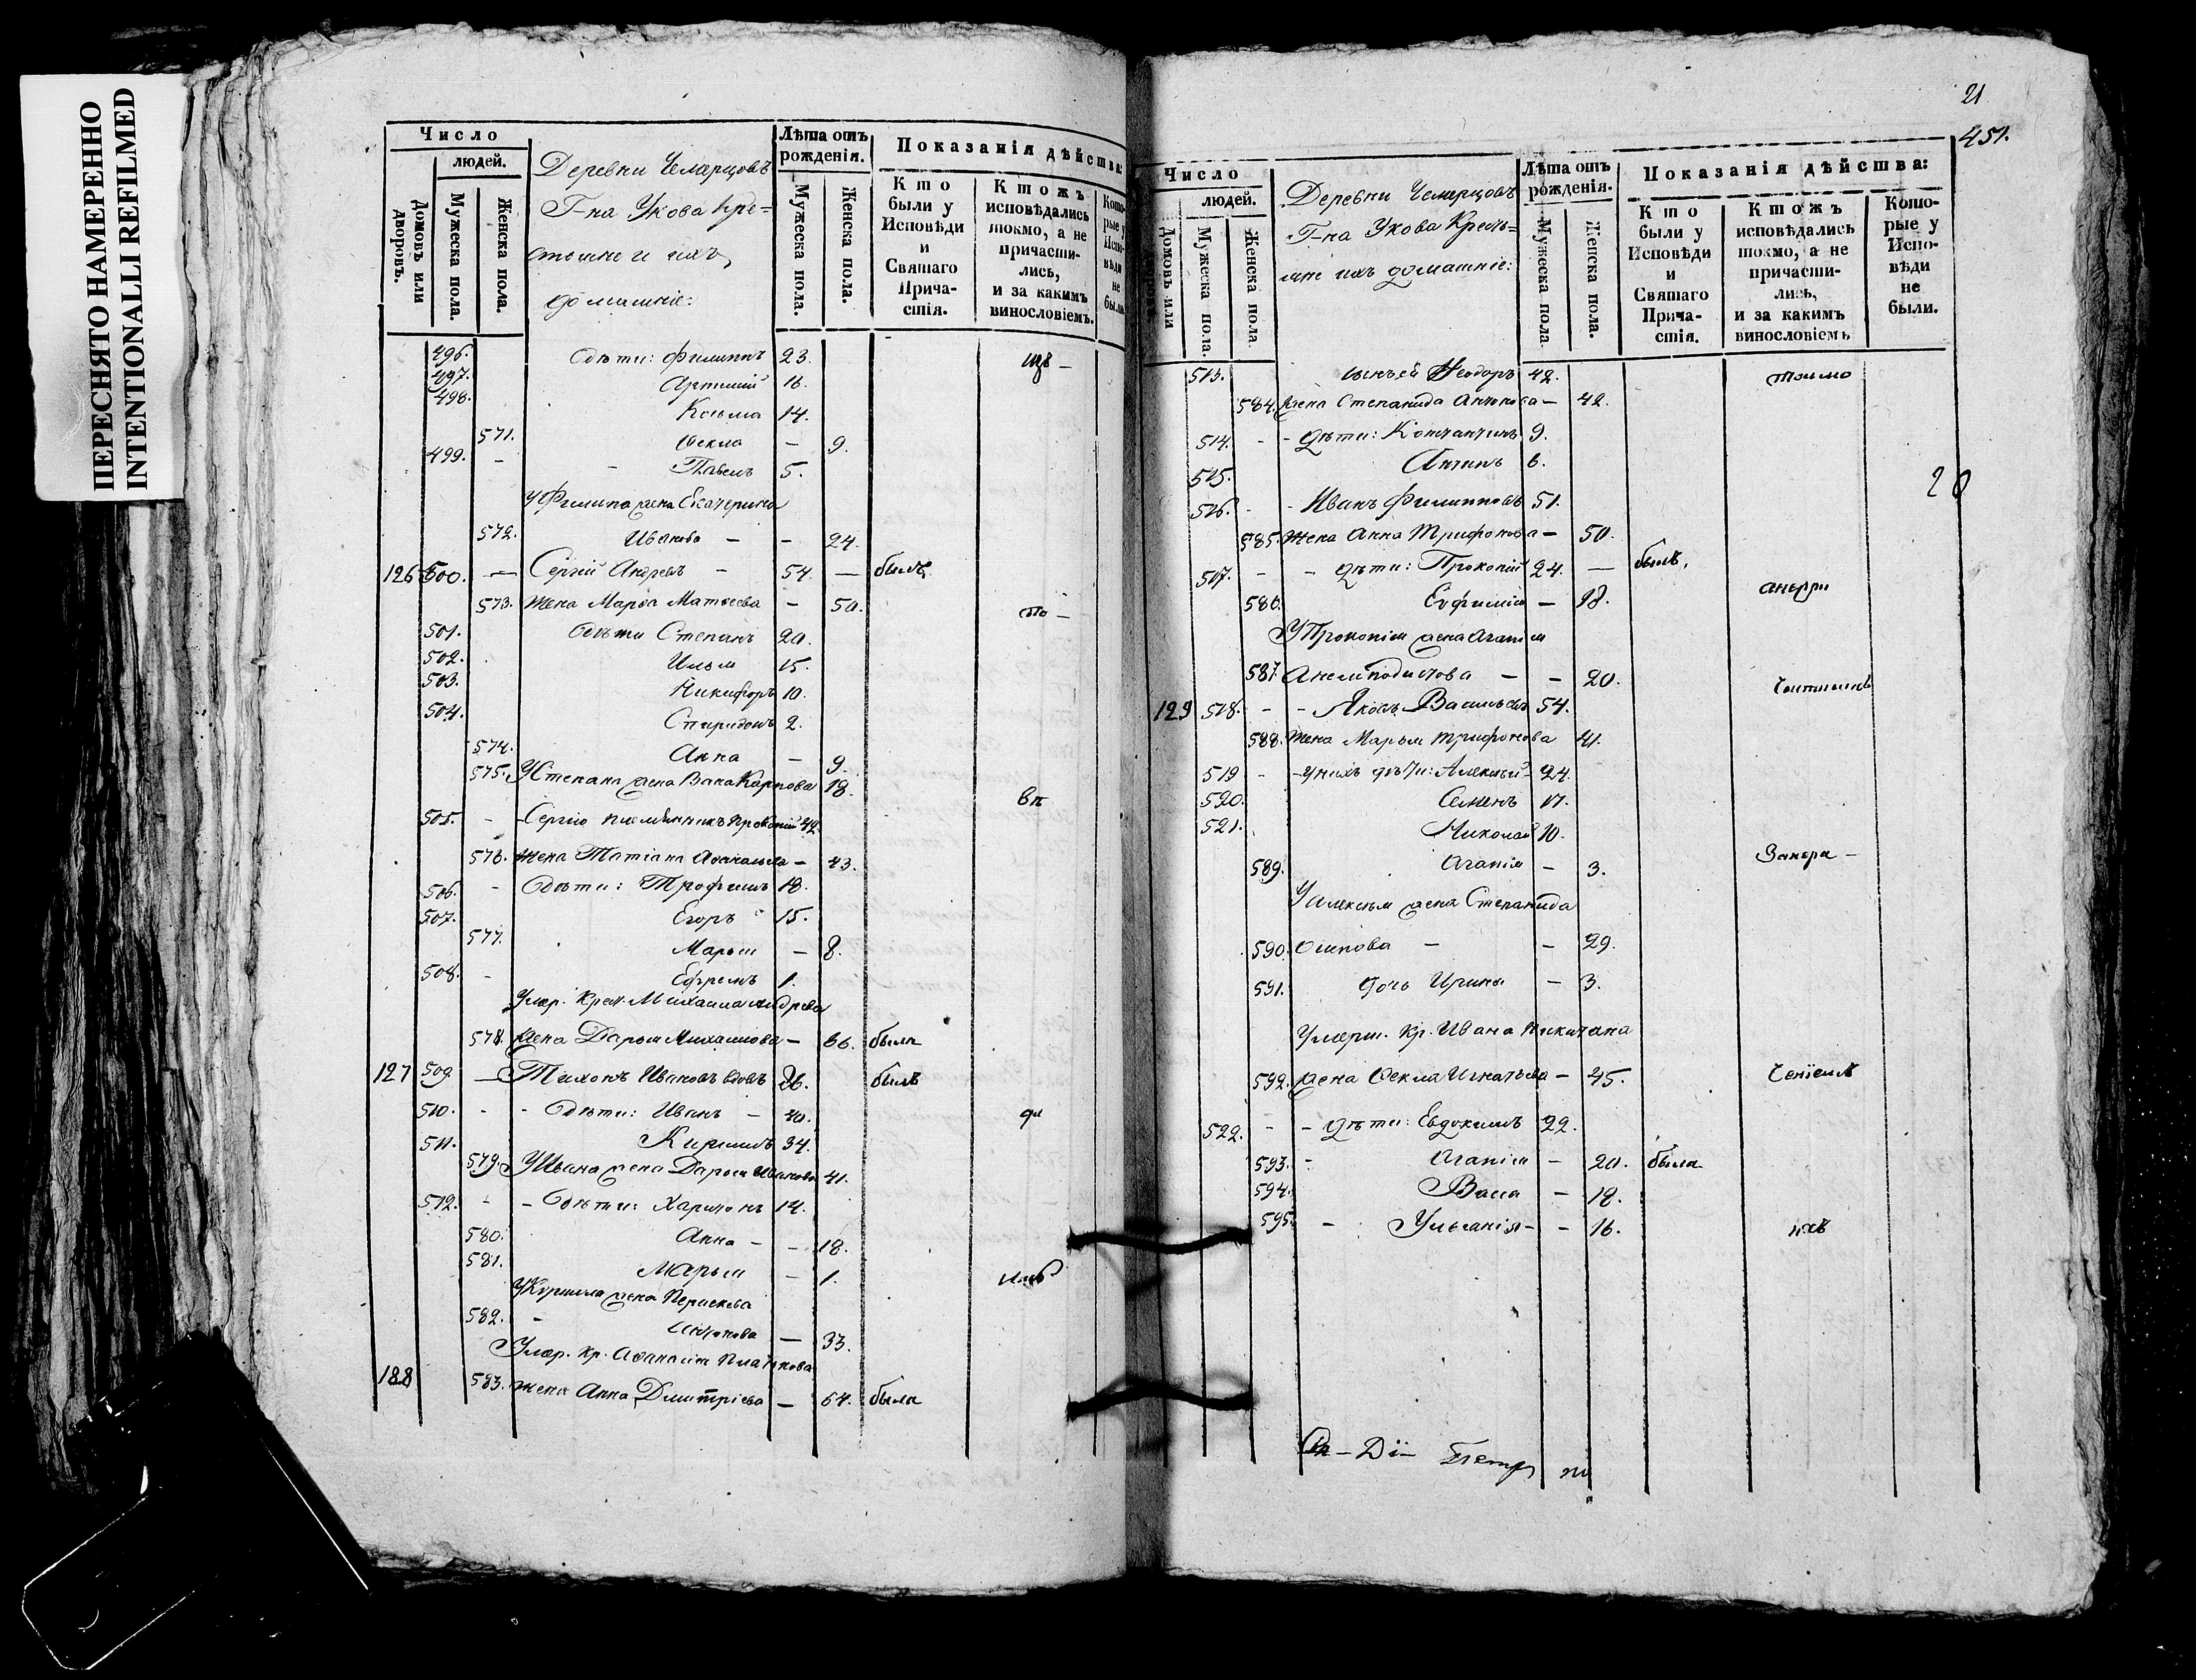 ПЕРЕСНЯТО НАМЕРЕННО
INTENTIONALLI REFILMED
Число
людей.
Домовъ или дворовъ.
Мужеска пола.
Женска пола.
Деревни Чемерцовъ
Г-на Укова Кре=
стьяне и ихъ
домашніе:
Лѣта отъ рожденія.
Мужеска пола.
Женска пола.
Показанія дѣйства:
Кто были у Исповѣди и Святаго Причастія.
Ктожъ исповѣдались токмо, а не причастились, и за какимъ винословіемъ.
Которые у Исповѣди не были.
496. дѣти: Филиппъ 23.
497. Артемій 16.
498. Козьма 14.
571. Ѳекла - 9.
499. - - Павелъ 5.
У Филипа жена Екатерина
572. Иванова - - 24.
126 500. - Сергій Андреевъ - 54. - былъ,
573. жена Марѳа Матвеева - 50. то -
501. дѣти Степанъ 20.
502. Илья 15.
503. Никифоръ 10.
504. Спиридонъ 2.
574. Анна - 9.
575. У Степана жена Васа Карпова 18.
505. - Сергію племянникъ Прокопій 42.
вп
576. жена Татіана Аѳанасьева - 43.
506. - дѣти: Трофимъ 18.
507. Егоръ 15.
577. Марья - 8.
508. - Ефремъ 1.
Умер. Крест. Михаила Андреева
578. жена Дарья Михаилова - 66. была
127 509 - Тихонъ Ивановъ вдовъ 26. былъ
510. - - дѣти: Иванъ - 40.
511. Кирилъ 34.
579. У Ивана жена Дарья Иванова 41.
512. - - дѣти: Харитонъ 14.
580. Анна - - 18.
581. Марья - 1.
У Кирила жена Пераскева
582. - Антонова - 33.
Умер. Кр. Аѳанасія Платонова
188 583. жена Анна Дмитріева - 64. была
21
451.
Число
людей.
Домовъ или
Мужеска пола.
Женска пола.
Деревни Чемерцовъ
Г-на Укова Кресть=
яне ихъ домашніе:
Лѣта отъ рожденія.
Мужеска пола.
Женска пола.
Показанія дѣйства:
Кто были у Исповѣди и Святаго Причастія.
Ктожъ исповѣдались токмо, а не причастились, и за какимъ винословіемъ
Которые у Исповѣди не были.
513. сынъ ей Ѳеодоръ 42.
584. жена Степанида Антонова - 42.
514. - - дѣти: Констанчинъ 9.
515. Антипъ 6.
20
516. - - Иванъ Филипповъ 51.
585. жена Анна Трифонова - 50.
517. - - дѣти: Прокопій 24. - былъ,
586. Евфимія - 18.
У Прокопія жена Агапія
587. Анемподистова - - 20.
129 518. - - Яковъ Васильевъ 54.
588. жена Марья Трифонова 41.
519 - - у нихъ дѣти: Алексѣй - 24.
520. Семенъ 17.
521. Николай 10.
589. Агапія - 3.
У Алексѣя жена Степанида
590. Осипова - - 29.
591. дочь Ирина - 3.
Умерш. Кр. Ивана Никитина
592. жена Ѳекла Игнатьева - 45.
522. - - дѣти: Евдокимъ 22.
593. - Агапія - 20. была
594. Васса - 18.
595. - Ульянія - - 16.